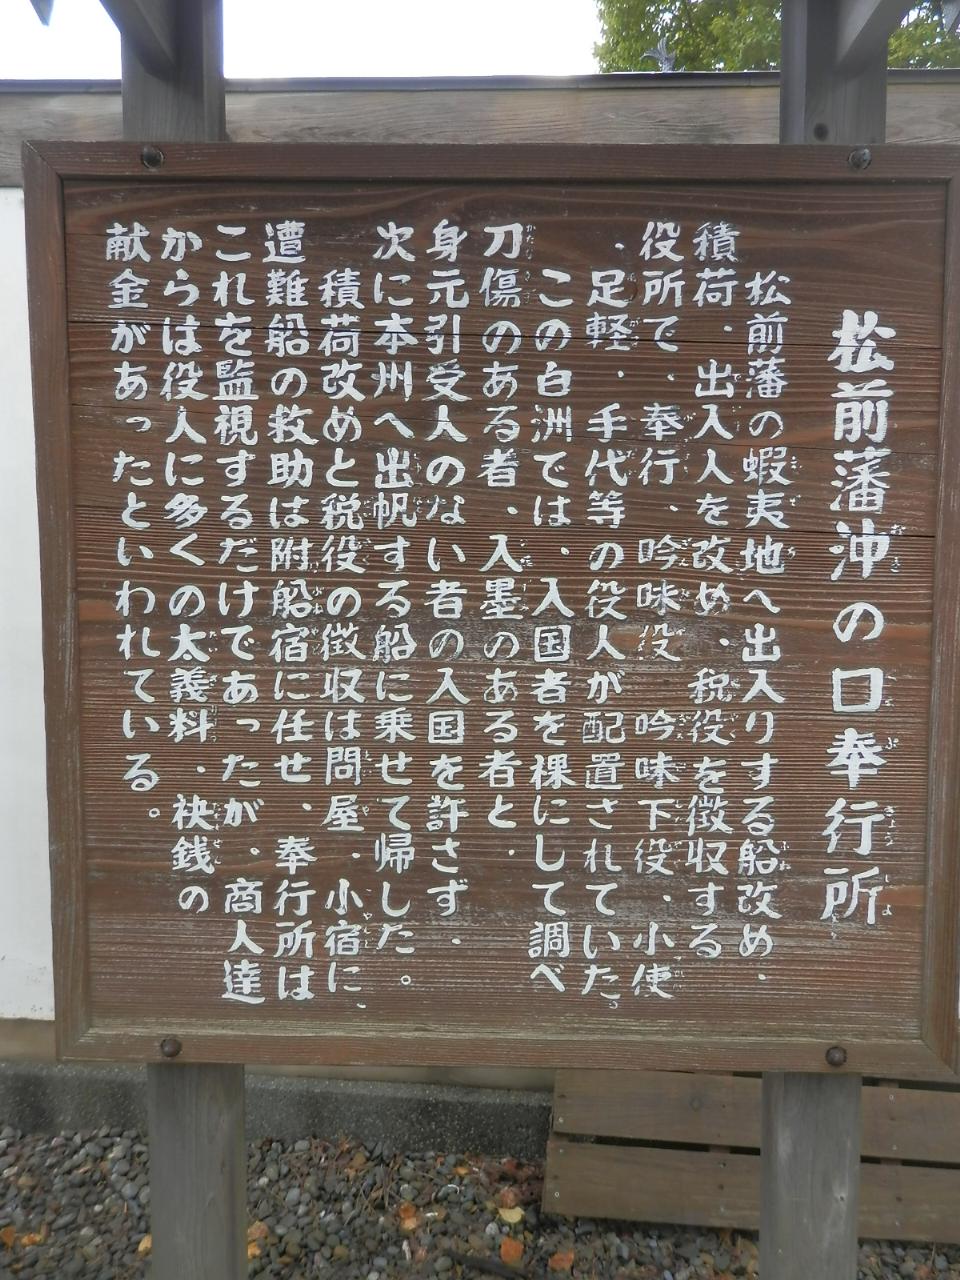 松前藩沖の口奉行所
松前藩の蝦夷地へ出入りする船改め、
積荷、出入人を改め、税役を徴収する
役所で、奉行、吟味役、吟味下役、小使
、足軽、手代等の役人が配置されていた。
この白洲では、入国者を裸にして調べ
刀傷のある者、入墨のある者と、
身元引受人のない者の入国を許さず、
次に本州へ出帆する船に乗せて帰した。
積荷改めと税役の徴収は問屋、小宿に、
遭難船の救助は附船宿に任せ、奉行所は
これを監視するだけであったが、商人達
からは役人に多くの太義料、袂銭の
献金があったといわれている。